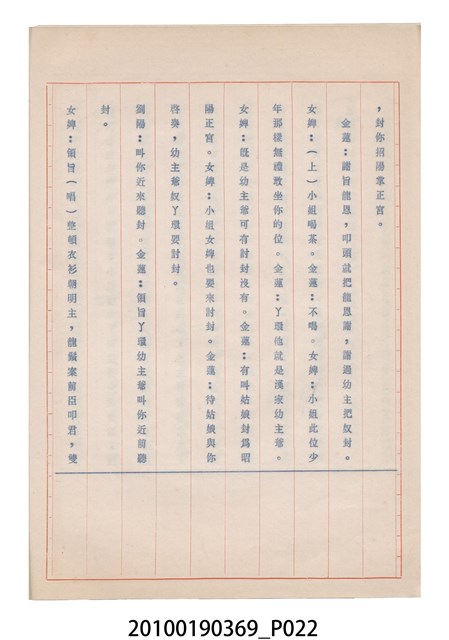 ，封你招陽掌正宮。
金蓮：謝旨龍恩，叩頭就把龍恩謝，謝過幼主把奴封。
女婢：（上）小姐喝茶。金蓮：不喝。女婢：小姐此位少
年那樣無禮敢坐你的位。金蓮：丫環他就是漢家幼主爺。
女婢：既是幼主爺可有討封沒有。金蓮：有叫姑娘封為昭
陽正宮。女婢：小姐女婢也要來討封。金蓮：待姑娘與你
啓奏，幼主爺奴丫環要討封。
瀏陽：叫你近來聽封。金蓮：領旨丫環幼主爺叫你近前聽
封。
女婢：領旨（唱）整頓衣衫朝明主，龍鬚案前臣叩君，雙
20100190369_P022